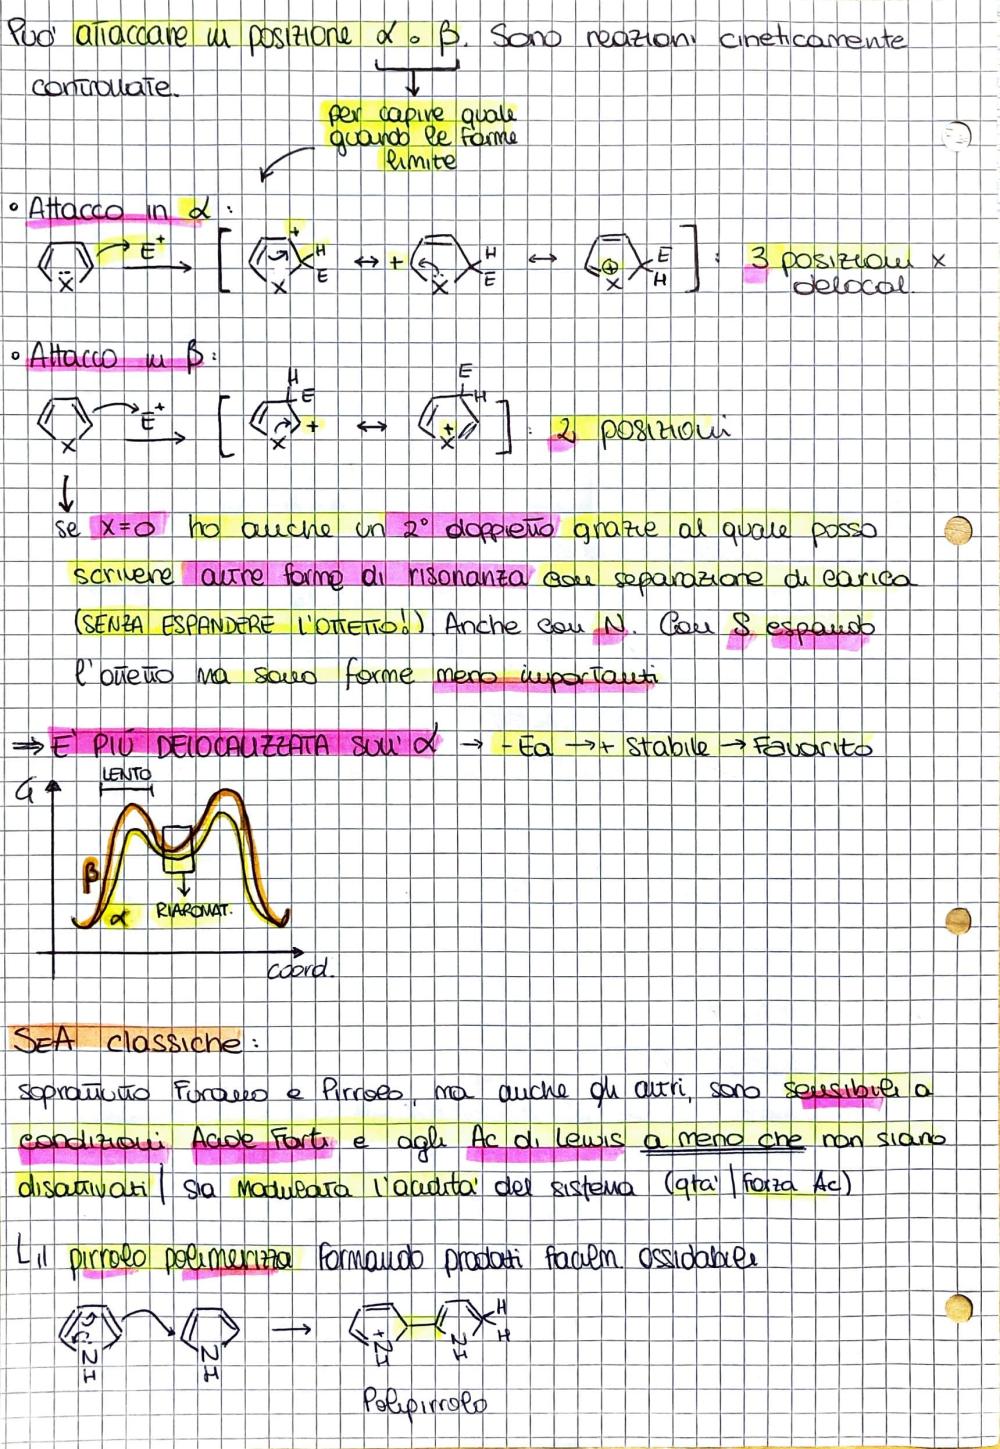 Può attaccare in posizione α o β. Sono reazioni cineticamente
controllate.
per capire quale
guardo le forme
limite
• Attacco in α:
E+ [ + H E X ↔ + H E X ↔ + E H X ] : 3 posizioni x
delocal.
• Attacco in β:
X E+ [ H E X + ↔ E H X + ] : 2 posizioni
se X=O ho anche un 2° doppietto grazie al quale posso
scrivere altre forme di risonanza con separazione di carica
(SENZA ESPANDERE L'OTTETTO!) Anche con N. Con S espando
l'ottetto ma sono forme meno importanti
⇒ E' PIÙ DELOCALIZZATA SULL' α → - Ea → + stabile → Favorito
LENTO
G
β
α RIAROMAT.
coord.
SEA classiche:
soprattutto Furano e Pirrolo, ma anche gli altri, sono sensibili a
condizioni Acide Forti e agli Ac di Lewis a meno che non siano
disattivati / sia modulata l'acidità del sistema (qtà / forza Ac)
L il pirrolo polimerizza formando prodotti facilm. ossidabili
N H N H → + N H N H H H
Polipirrolo